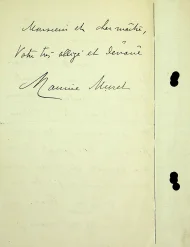 Monsieur et cher maître,
Votre très obligé et dévoué
Maurice Muret